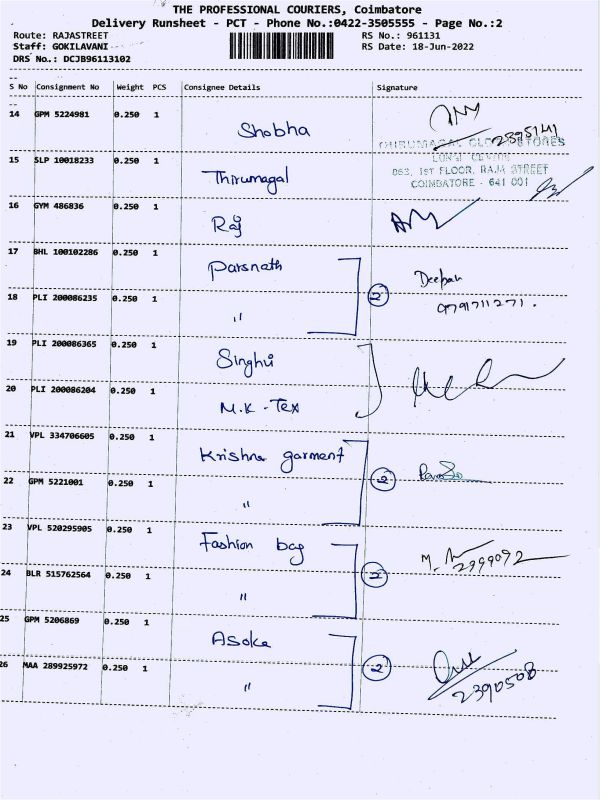 THE PROFESSIONAL COURIERS, Coimbatore
Delivery Runsheet - PCT - Phone No.:0422-3505555 - Page No.:2
Route: RAJASTREET RS No.: 961131
Staff: GOKILAVANI RS Date: 18-Jun-2022
DRS No.: DCJB96113102
S No Consignment No Weight PCS Consignee Details Signature
14 GPM 5224981 0.250 1 Shobha 2395141
THIRUMAGAL CLOTH STORES
15 SLP 10018233 0.250 1 Thirumagal
863, 1ST FLOOR, RAJA STREET
COIMBATORE - 641 001
16 GYM 486836 0.250 1 Raj
17 BHL 100102286 0.250 1 Parsnath Deepan
18 PLI 200086235 0.250 1 " 2 9791711271.
19 PLI 200086365 0.250 1 Singhvi
20 PLI 200086204 0.250 1 M.K - Tex
21 VPL 334706605 0.250 1 Krishna garment
22 GPM 5221001 0.250 1 " 2
23 VPL 520295905 0.250 1 Fashion bag
24 BLR 515762564 0.250 1 " 2 2999092
25 GPM 5206869 0.250 1 Asoka
26 MAA 289925972 0.250 1 " 2 2390508